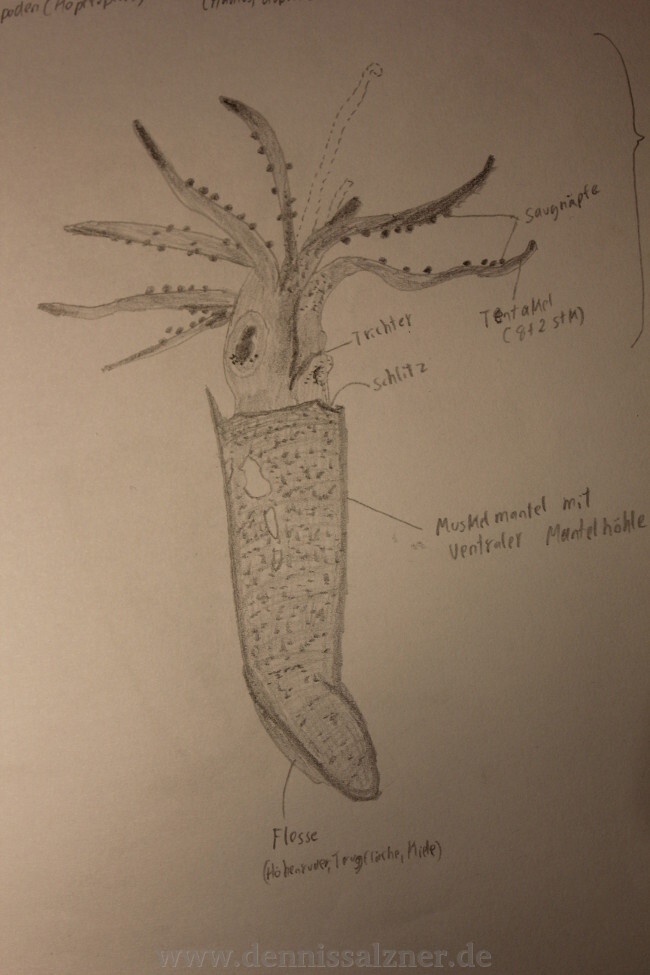 poden (Kopffüßer)
Saugnäpfe
Tentakel
(8+2 Stk)
Trichter
Schlitz
Muskelmantel mit
ventraler Mantelhöhle
Flosse
(Höhenruder, Tragfläche, Kiele)
www.dennissalzner.de